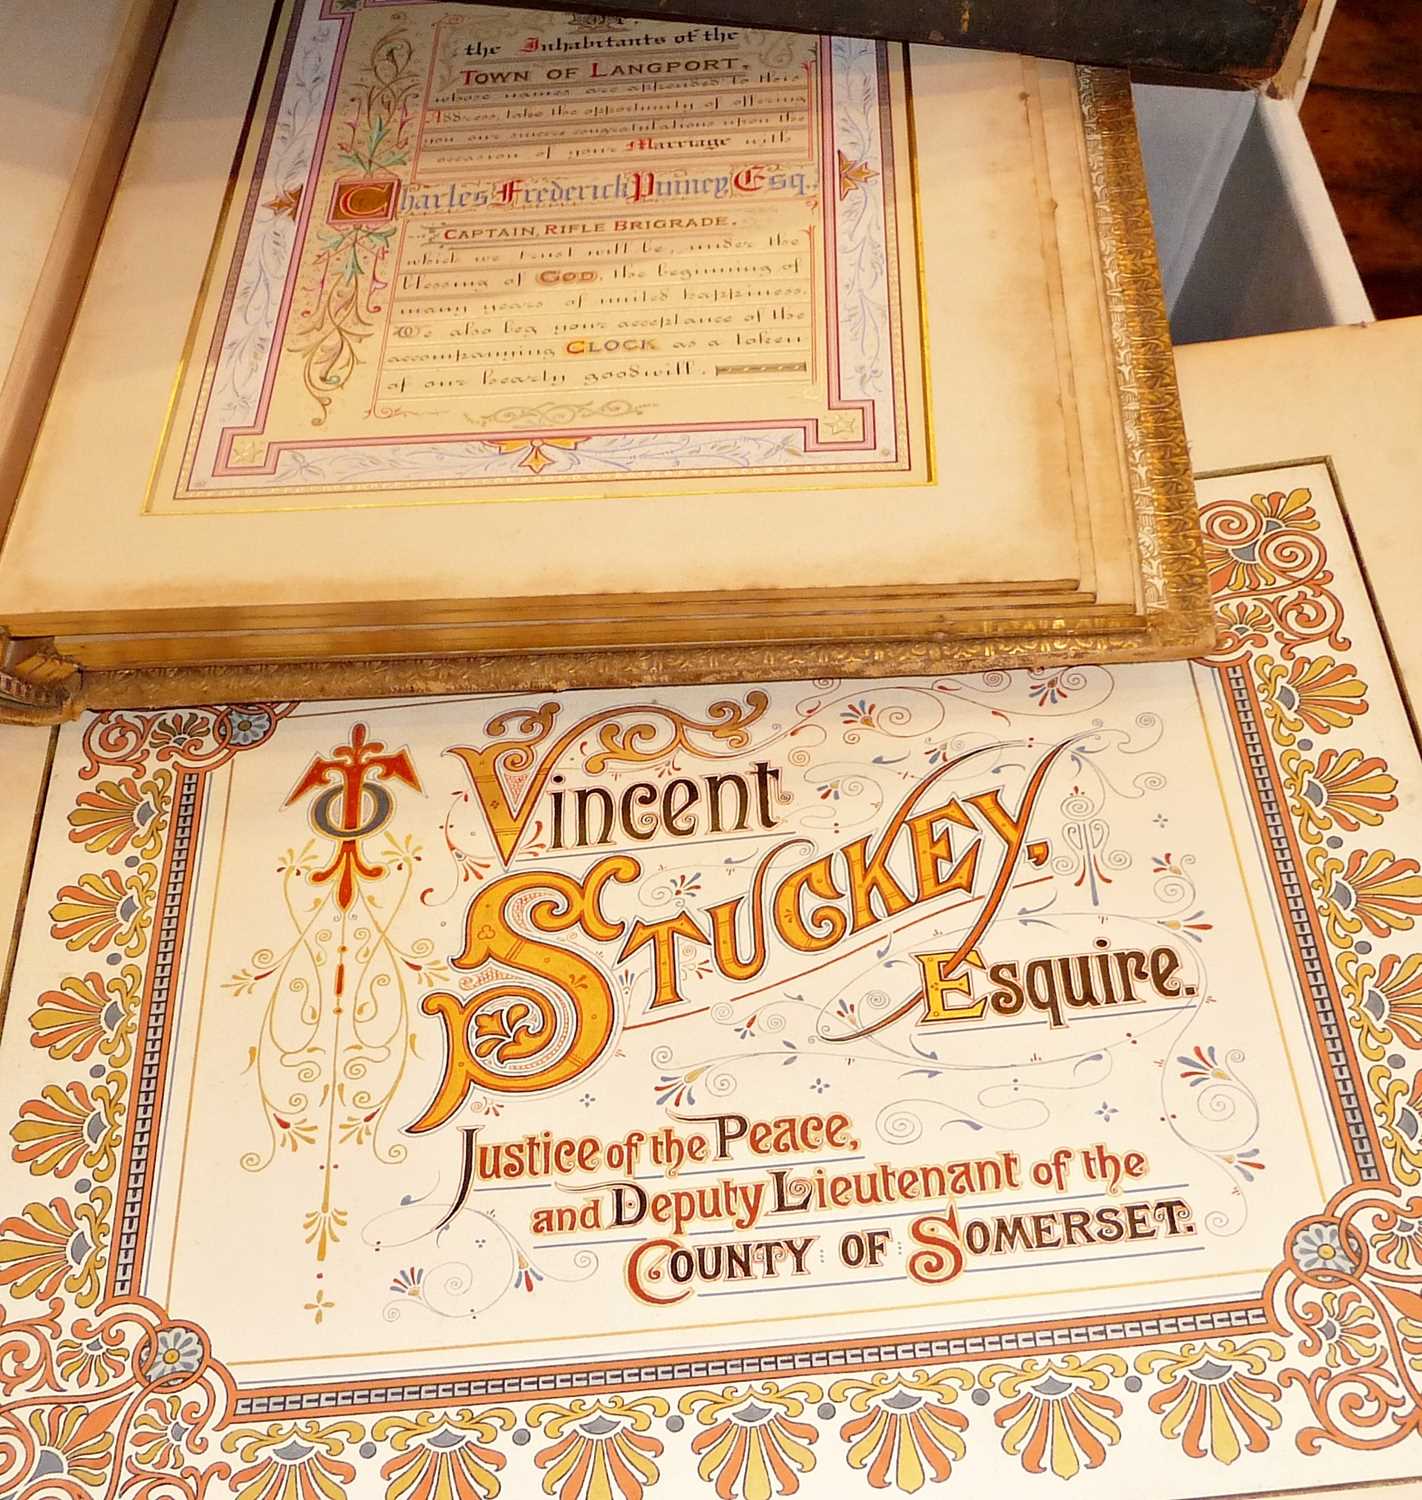 the Inhabitants of the
TOWN OF LANGPORT,
whose names are appended to this
Address, take the opportunity of offering
you our sincere congratulations upon the
occasion of your Marriage with
Charles Frederick Pinney, Esq.,
CAPTAIN, RIFLE BRIGRADE,
which we trust will be, under the
blessing of GOD, the beginning of
many years of united happiness.
We also beg your acceptance of the
accompanying CLOCK as a token
of our hearty goodwill.
TO
Vincent
STUCKEY,
Esquire.
Justice of the Peace,
and Deputy Lieutenant of the
COUNTY OF SOMERSET.